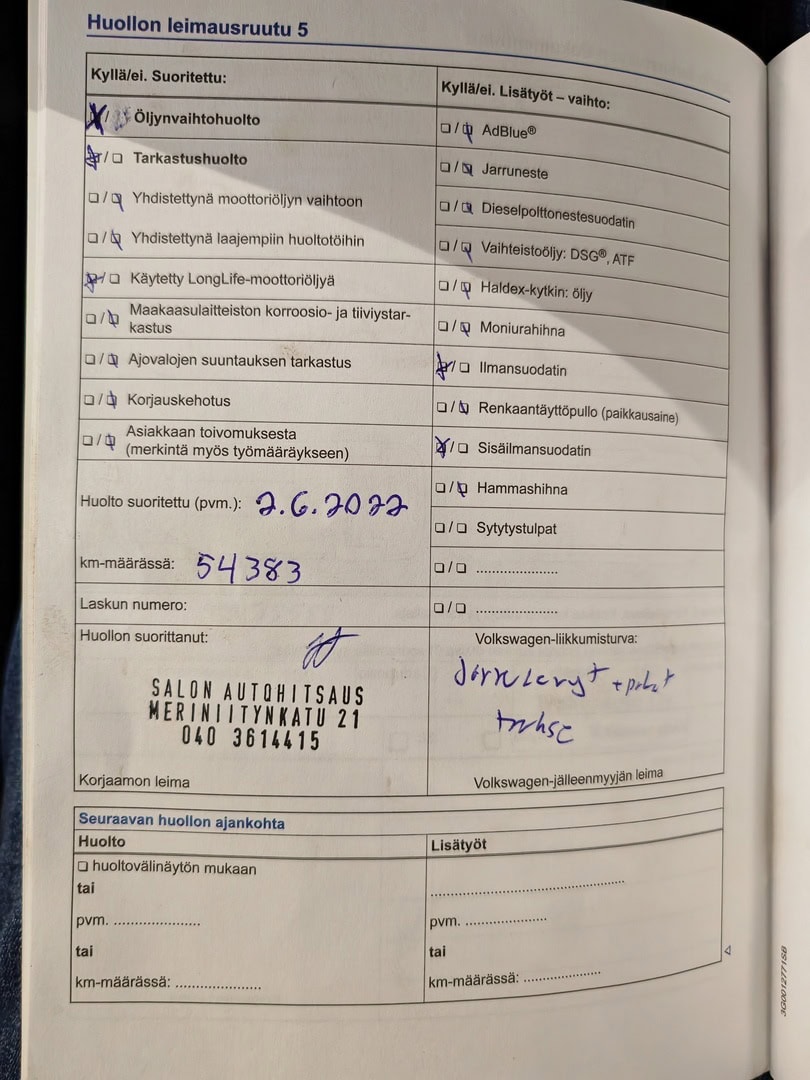 Huollon leimausruutu 5
Kyllä/ei. Suoritettu:
☒/☐ Öljynvaihtohuolto
☒/☐ Tarkastushuolto
☐/☒ Yhdistettynä moottoriöljyn vaihtoon
☐/☒ Yhdistettynä laajempiin huoltotöihin
☒/☐ Käytetty LongLife-moottoriöljyä
☐/☒ Maakaasulaitteiston korroosio- ja tiiviystar-
kastus
☐/☒ Ajovalojen suuntauksen tarkastus
☐/☒ Korjauskehotus
☐/☒ Asiakkaan toivomuksesta
(merkintä myös työmääräykseen)
Huolto suoritettu (pvm.): 2.6.2022
km-määrässä: 54383
Laskun numero:
Huollon suorittanut:
SALON AUTOHITSAUS
MERINIITYNKATU 21
040 3614415
Korjaamon leima
Kyllä/ei. Lisätyöt – vaihto:
☐/☒ AdBlue®
☐/☒ Jarruneste
☐/☒ Dieselpolttonestesuodatin
☐/☒ Vaihteistoöljy: DSG®, ATF
☐/☒ Haldex-kytkin: öljy
☐/☒ Moniurahihna
☒/☐ Ilmansuodatin
☐/☒ Renkaantäyttöpullo (paikkausaine)
☒/☐ Sisäilmansuodatin
☐/☒ Hammashihna
☐/☐ Sytytystulpat
☐/☐ ....................
☐/☐ ....................
Volkswagen-liikkumisturva:
Volkswagen-jälleenmyyjän leima
Seuraavan huollon ajankohta
Huolto
☐ huoltovälinäytön mukaan
tai
pvm. ....................
tai
km-määrässä: ....................
Lisätyöt
................................................
pvm. ....................
tai
km-määrässä: ....................
3G0012771SB